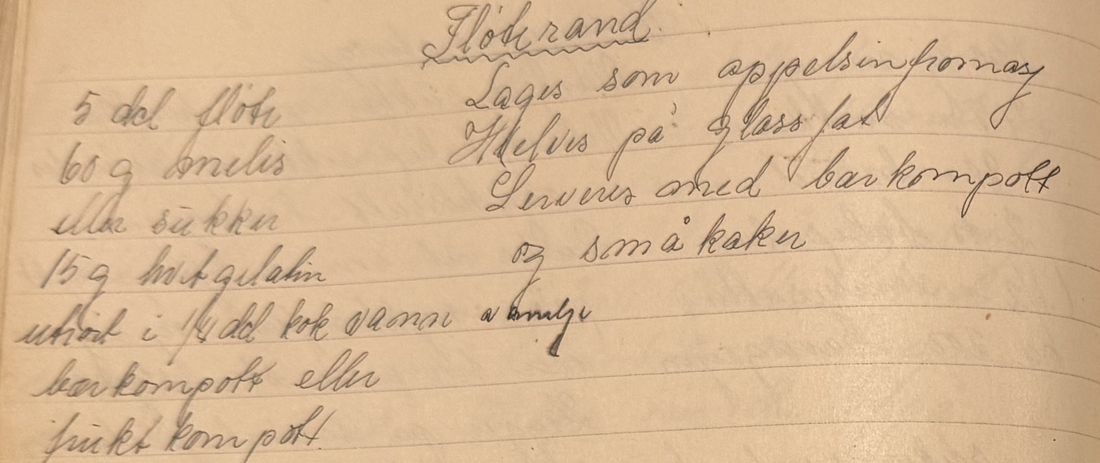 Fløterand.
5 dcl fløte
60 g melis
eller sukker
15 g hvit gelatin
utrørt i 1/4 dcl kok vann vanilje
bærkompott eller
frukt kompott
Lages som appelsinfromasj
Hvelves på glassfat
Serveres med bærkompott
og småkaker